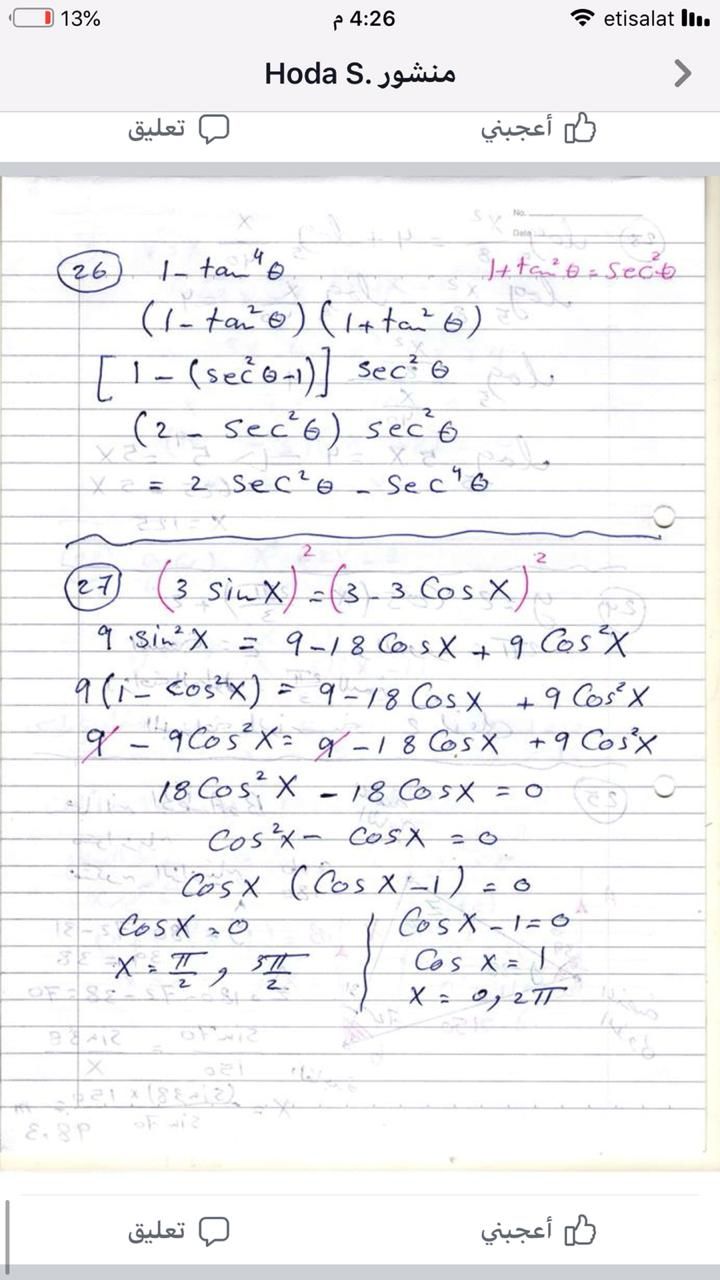 13% 4:26 م etisalat
منشور Hoda S.
أعجبني تعليق
No.
Date
26 1 - tan⁴θ 1 + tan²θ = sec²θ
(1 - tan²θ) (1 + tan²θ)
[1 - (sec²θ-1)] sec²θ
(2 - sec²θ) sec²θ
= 2 sec²θ - sec⁴θ
27 (3 sin X)² = (3 - 3 Cos X)²
9 sin²X = 9 - 18 Cos X + 9 Cos²X
9(1 - cos²X) = 9 - 18 Cos X + 9 Cos²X
9 - 9 Cos²X = 9 - 18 Cos X + 9 Cos²X
18 Cos²X - 18 Cos X = 0
Cos²X - Cos X = 0
Cos X (Cos X - 1) = 0
Cos X = 0 Cos X - 1 = 0
X = π/2 , 3π/2 Cos X = 1
X = 0, 2π
أعجبني تعليق